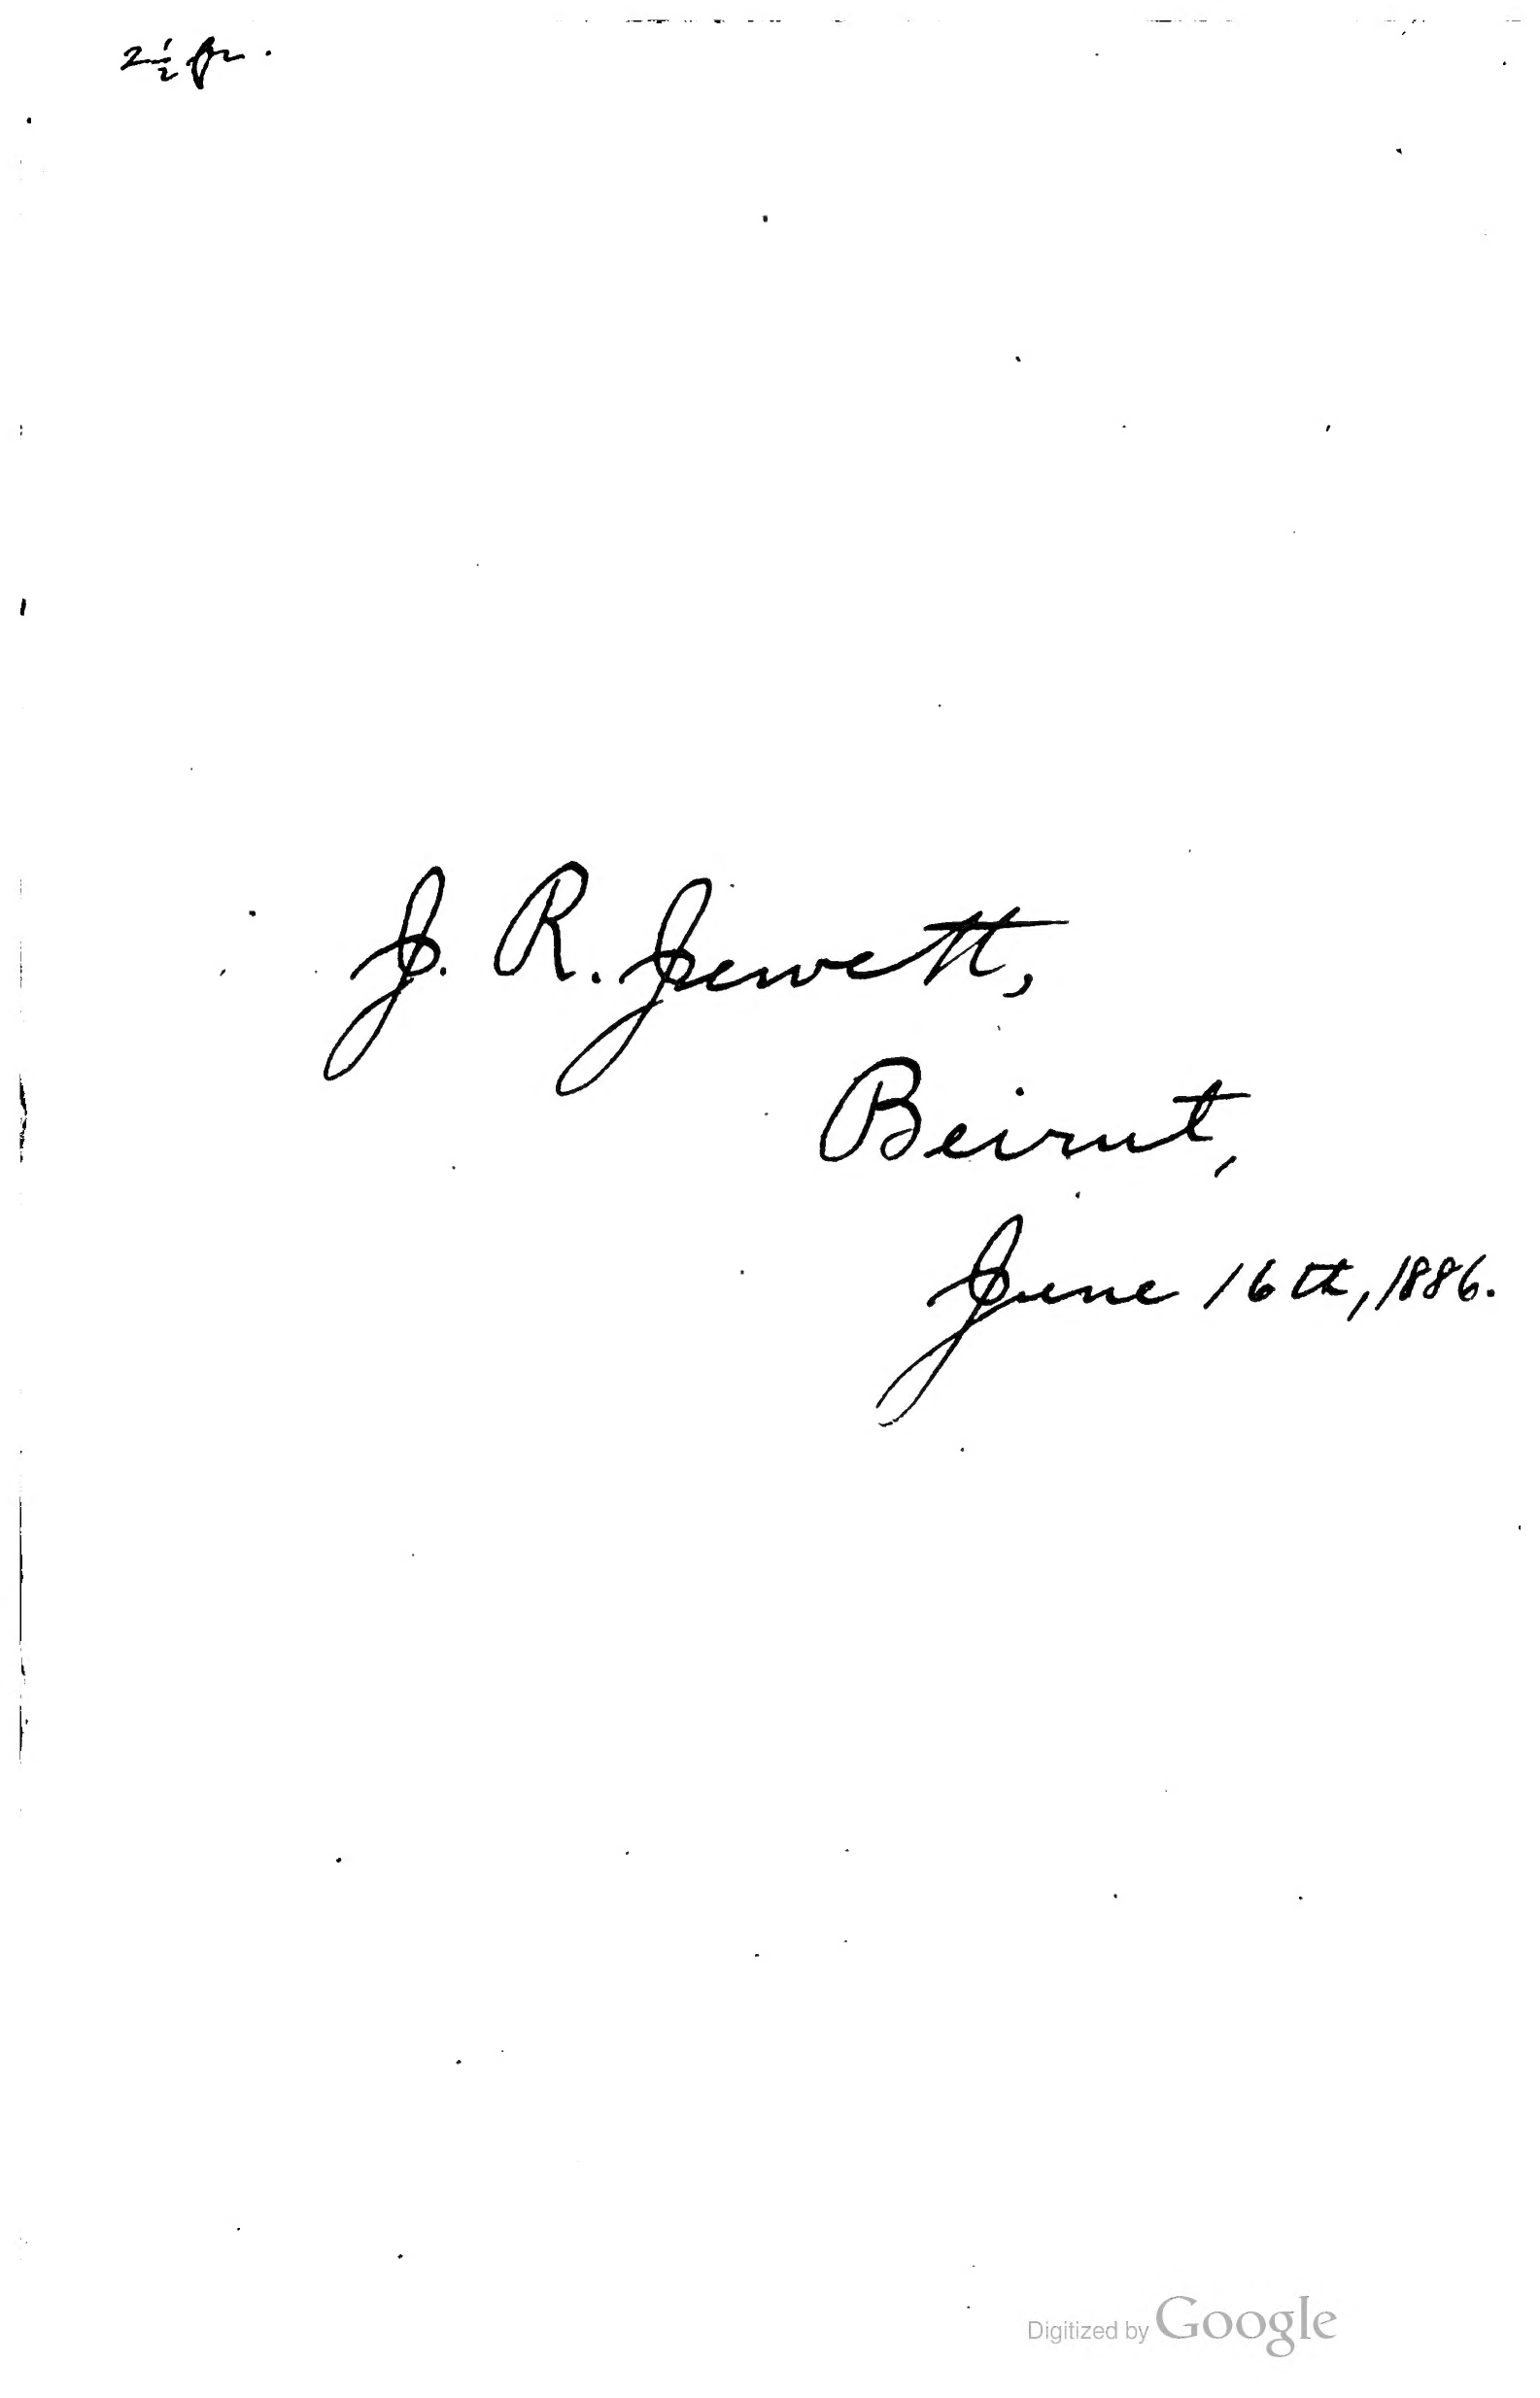 2½ fr.
J. R. Jewett,
Beirut,
June 16th, 1886.
Digitized by Google